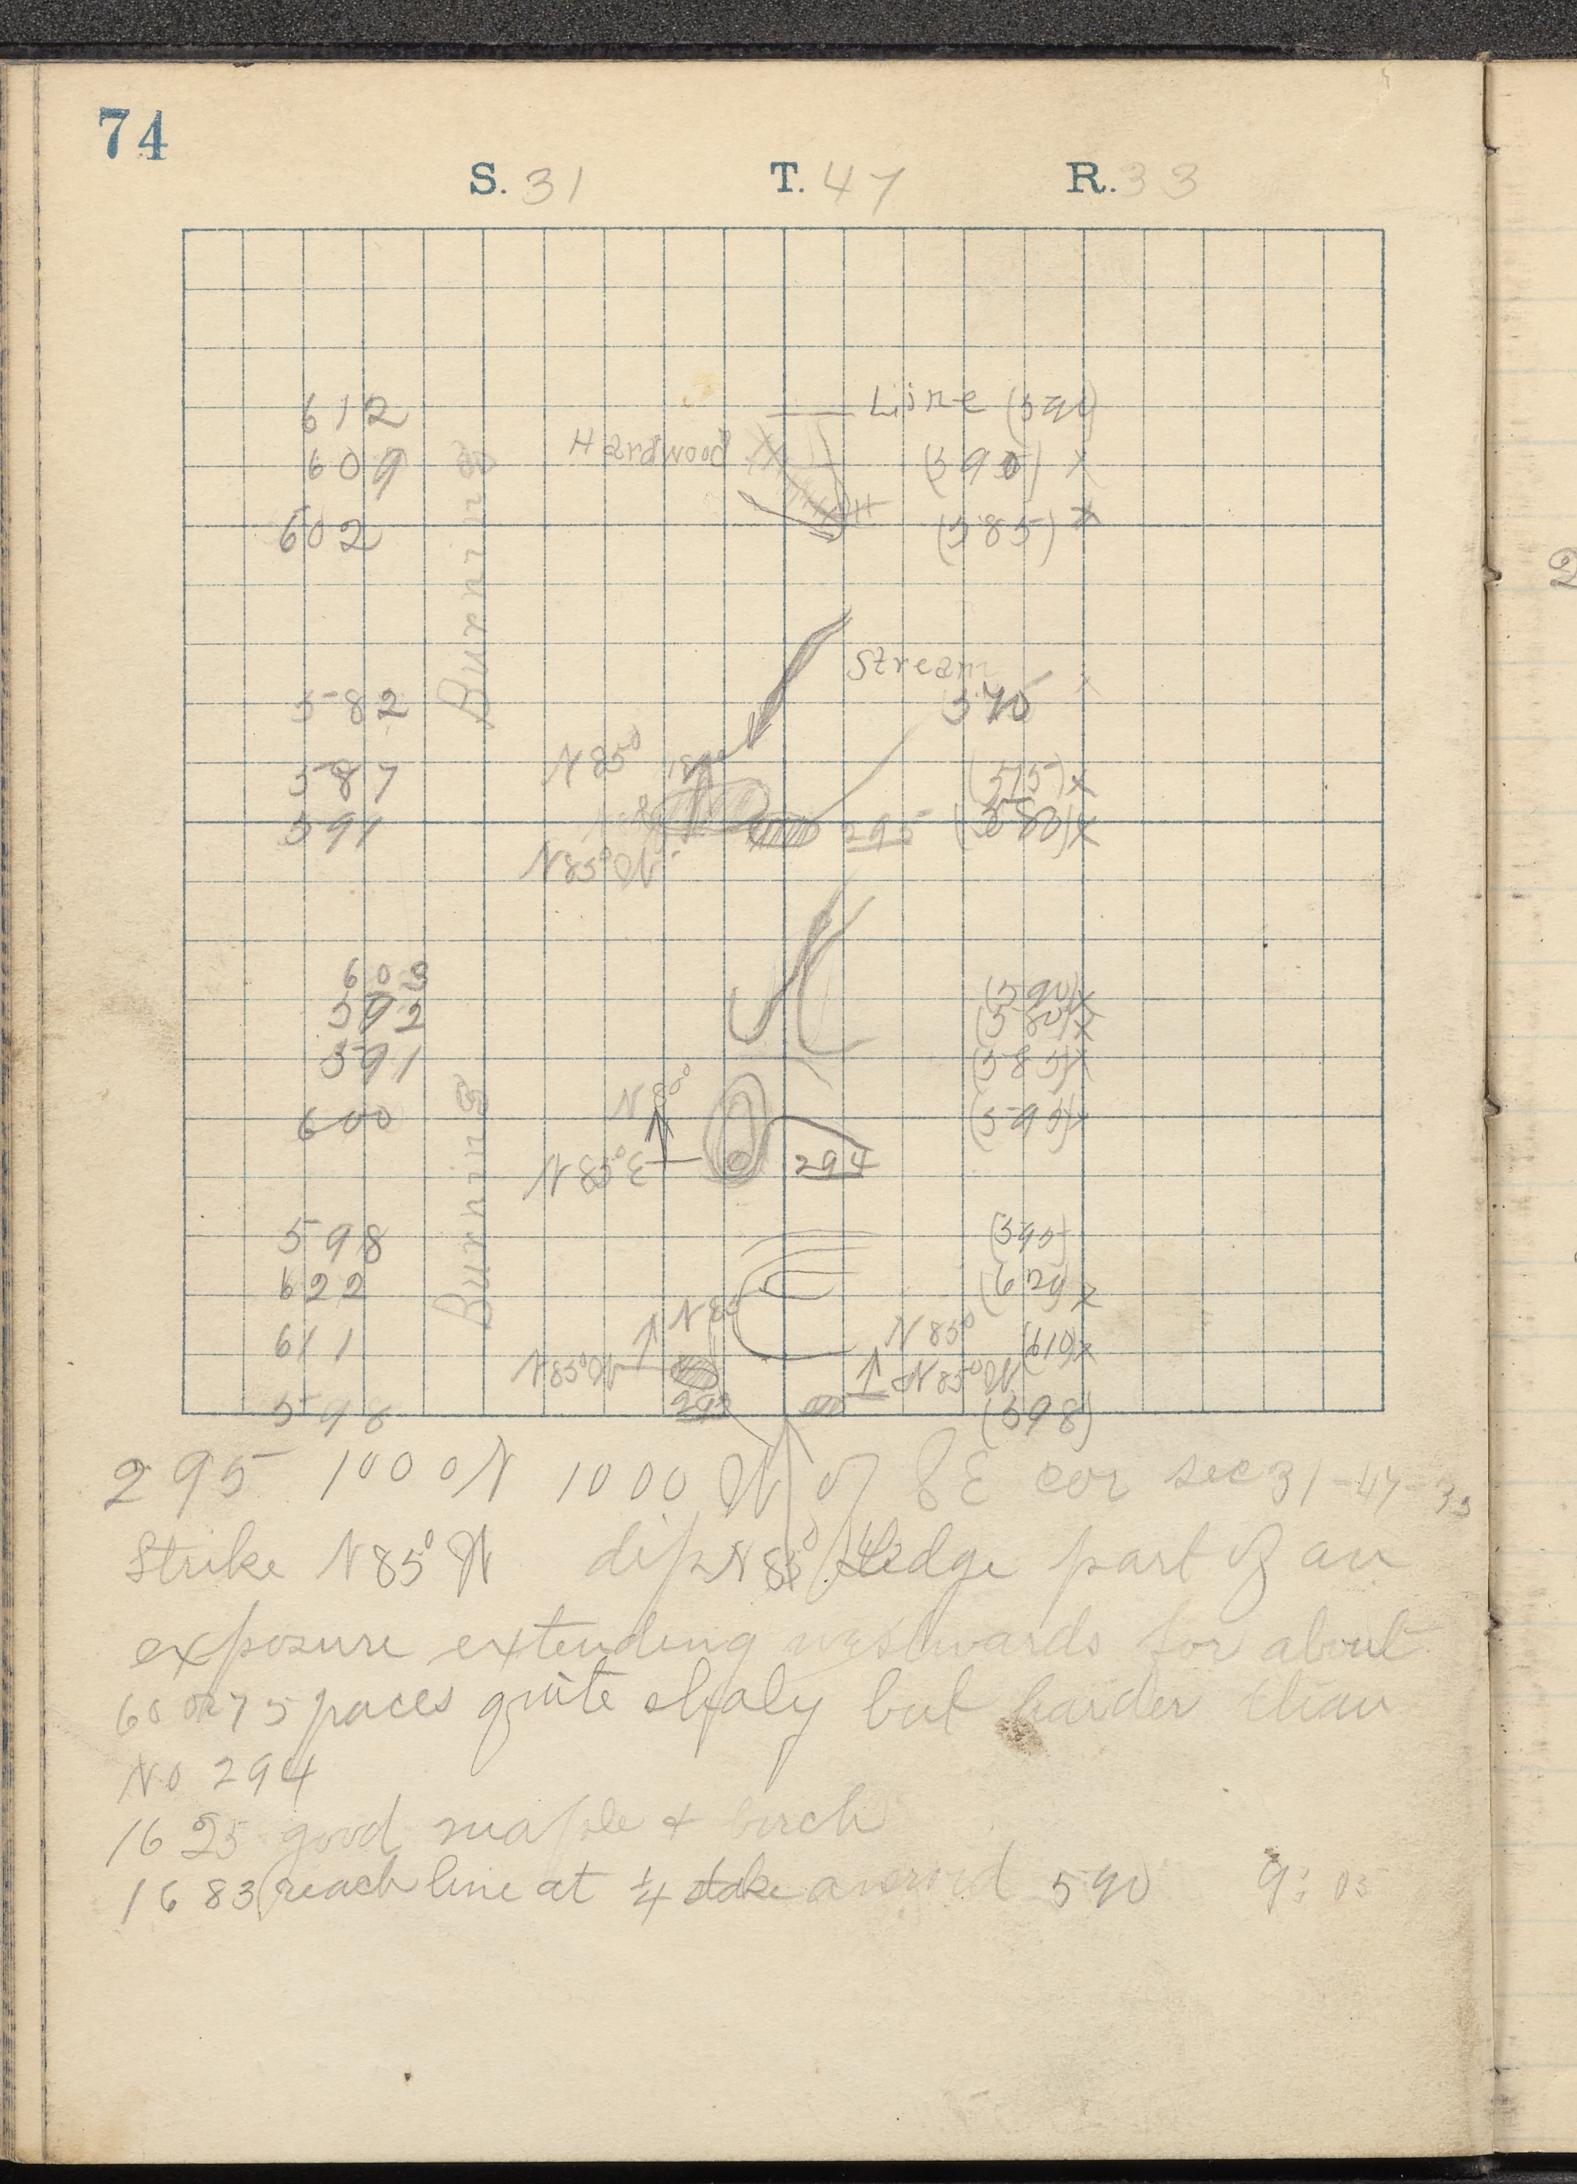 74
S. 31 T. 47 R. 33
612 Line (590)
609 Hardwood (590) x
602 (585) x
Burning
Stream
582 570 x
N 85°
587 (575) x
591 295 (580) x
N85°W
603 (590) x
592 (580) x
591 (585) x
N 80°
600 (595) x
N 85° E 294
Burning
598 (595)
622 (620) x
N 85
611 N 85° (610) x
N85°W N 85° W
293
598 (598)
295 1000 N 1000 W of SE cor sec 31-47-33
Strike N 85° W dip N 85° Ledge part of an
exposure extending westwards for about
60 or 75 paces quite shaly but harder than
No 294
1625 good maple & birch
1683 reach line at 1/4 stake aneroid 590 9:05